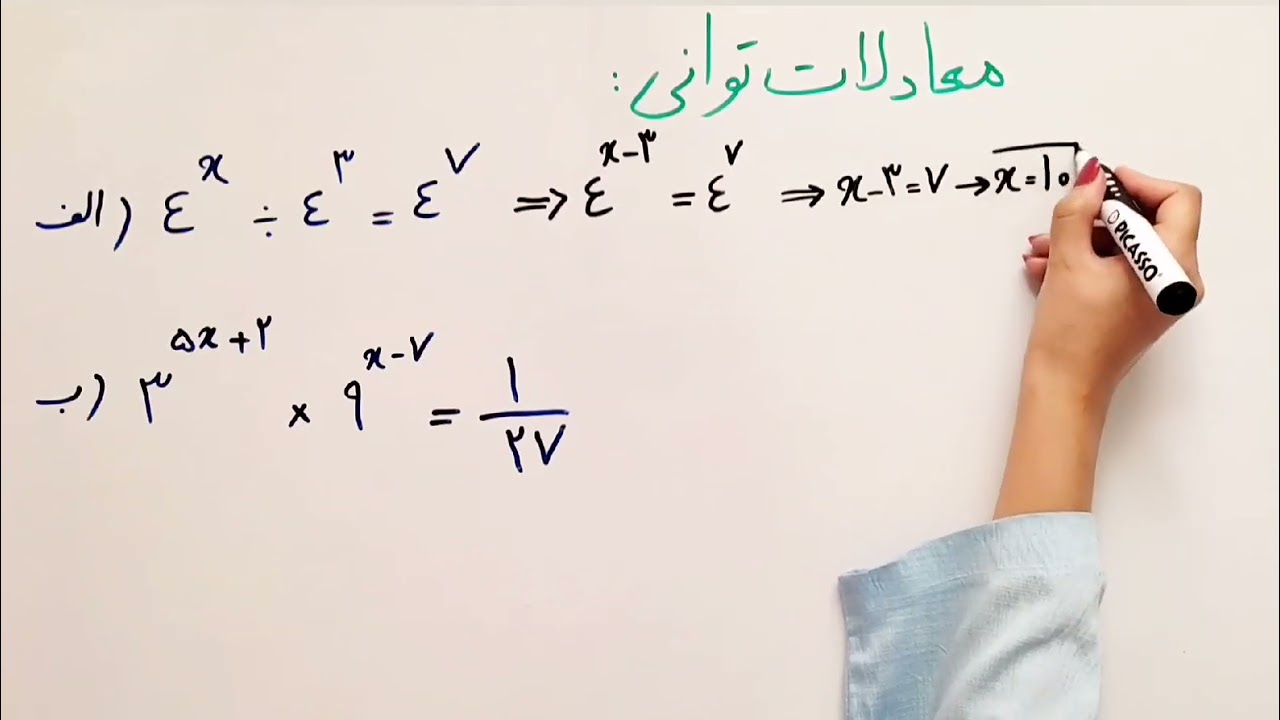 معادلات توانی :
الف) ٤^x ÷ ٤^۳ = ٤^۷ ⇒ ٤^(x-۳) = ٤^۷ ⇒ x-۳=۷ → x=۱۰
ب) ۳^(۵x+۲) × ۹^(x-۷) = ۱/۲۷
PICASSO